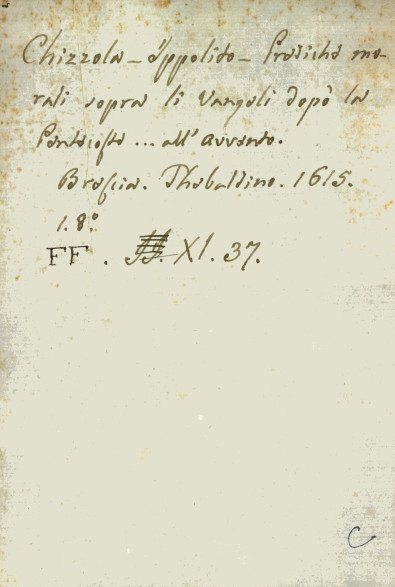 Chizzola - Ippolito - Prediche mo-
rali sopra li Vangeli dopò la
Pentecoste ... all' avvento.
Brescia. Thebaldino. 1615.
1. 8.°
FF . XI. 37.
C